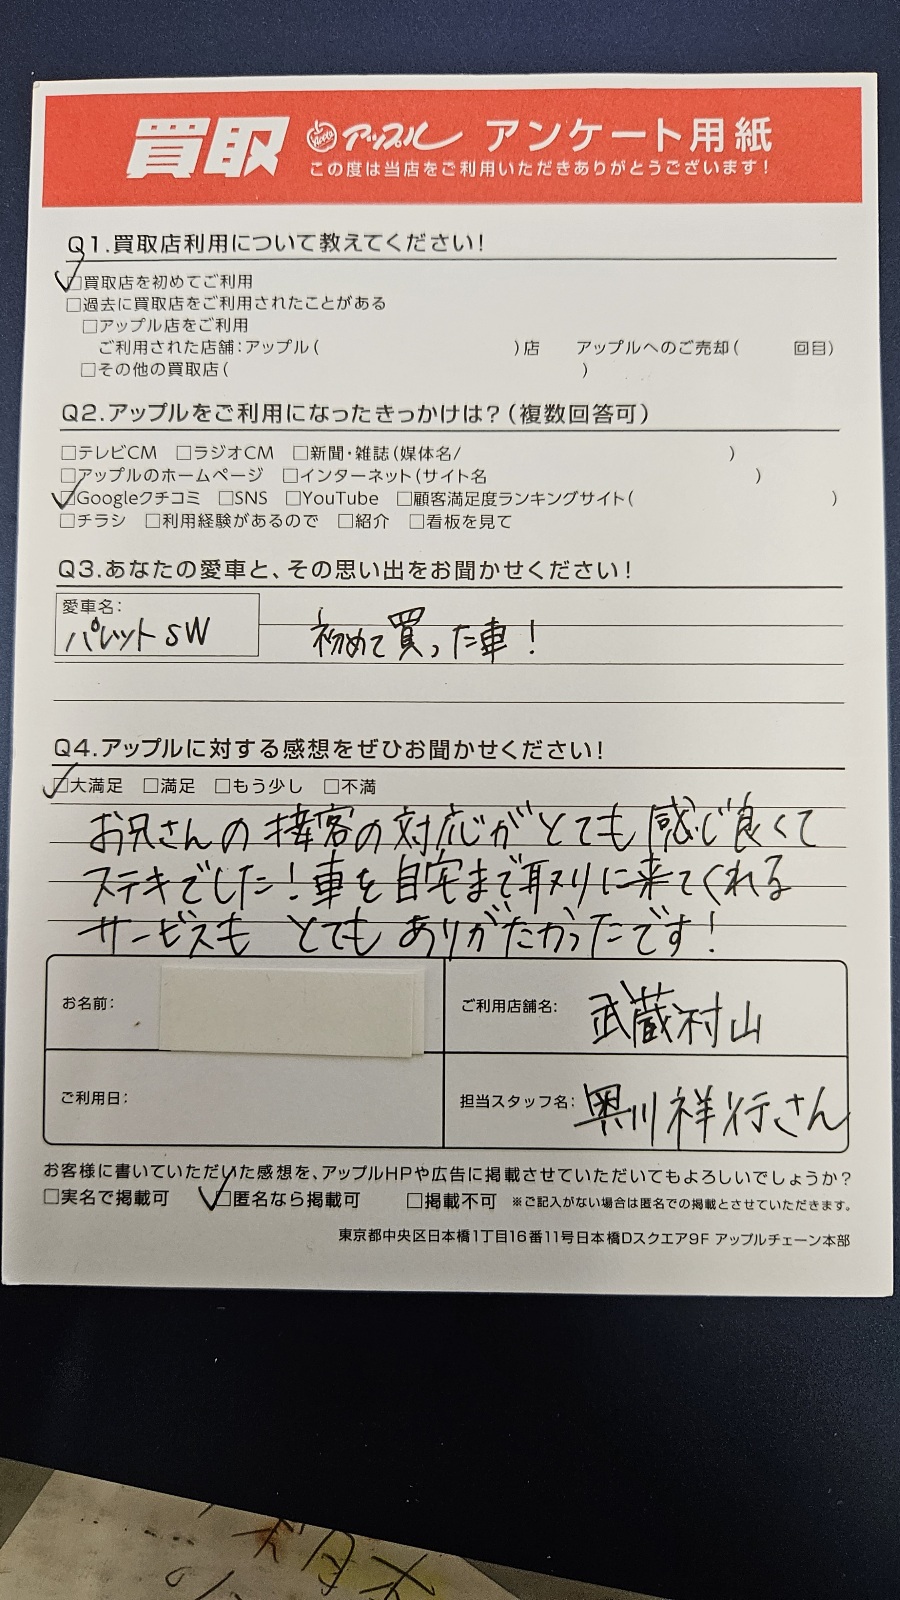 買取 Apple アップル アンケート用紙
この度は当店をご利用いただきありがとうございます!
Q1.買取店利用について教えてください!
☑買取店を初めてご利用
□過去に買取店をご利用されたことがある
□アップル店をご利用
ご利用された店舗:アップル( )店 アップルへのご売却( 回目)
□その他の買取店( )
Q2.アップルをご利用になったきっかけは?(複数回答可)
□テレビCM □ラジオCM □新聞・雑誌(媒体名/ )
□アップルのホームページ □インターネット(サイト名 )
☑Googleクチコミ □SNS □YouTube □顧客満足度ランキングサイト( )
□チラシ □利用経験があるので □紹介 □看板を見て
Q3.あなたの愛車と、その思い出をお聞かせください!
愛車名:
パレットSW 初めて買った車!
Q4.アップルに対する感想をぜひお聞かせください!
☑大満足 □満足 □もう少し □不満
お兄さんの接客の対応がとても感じ良くて
ステキでした!車を自宅まで取りに来てくれる
サービスも とても ありがたかったです!
お名前: ご利用店舗名: 武蔵村山
ご利用日: 担当スタッフ名: 奥川祥行さん
お客様に書いていただいた感想を、アップルHPや広告に掲載させていただいてもよろしいでしょうか?
□実名で掲載可 ☑匿名なら掲載可 □掲載不可 ※ご記入がない場合は匿名での掲載とさせていただきます。
東京都中央区日本橋1丁目16番11号日本橋Dスクエア9F アップルチェーン本部